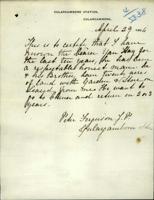 GULARGAMBONE STATION,
GULARGAMBONE,
April 29
This is to certify that I have
known the bearer Yan Hay for
the last ten years, he has been
a respectable honest man he
& his Brother have twenty acres
of land with Garden & Store on
leased from me he want to
go to China and return in 2 or 3
years.
Peter Ferguson J.P.
Gulargambone